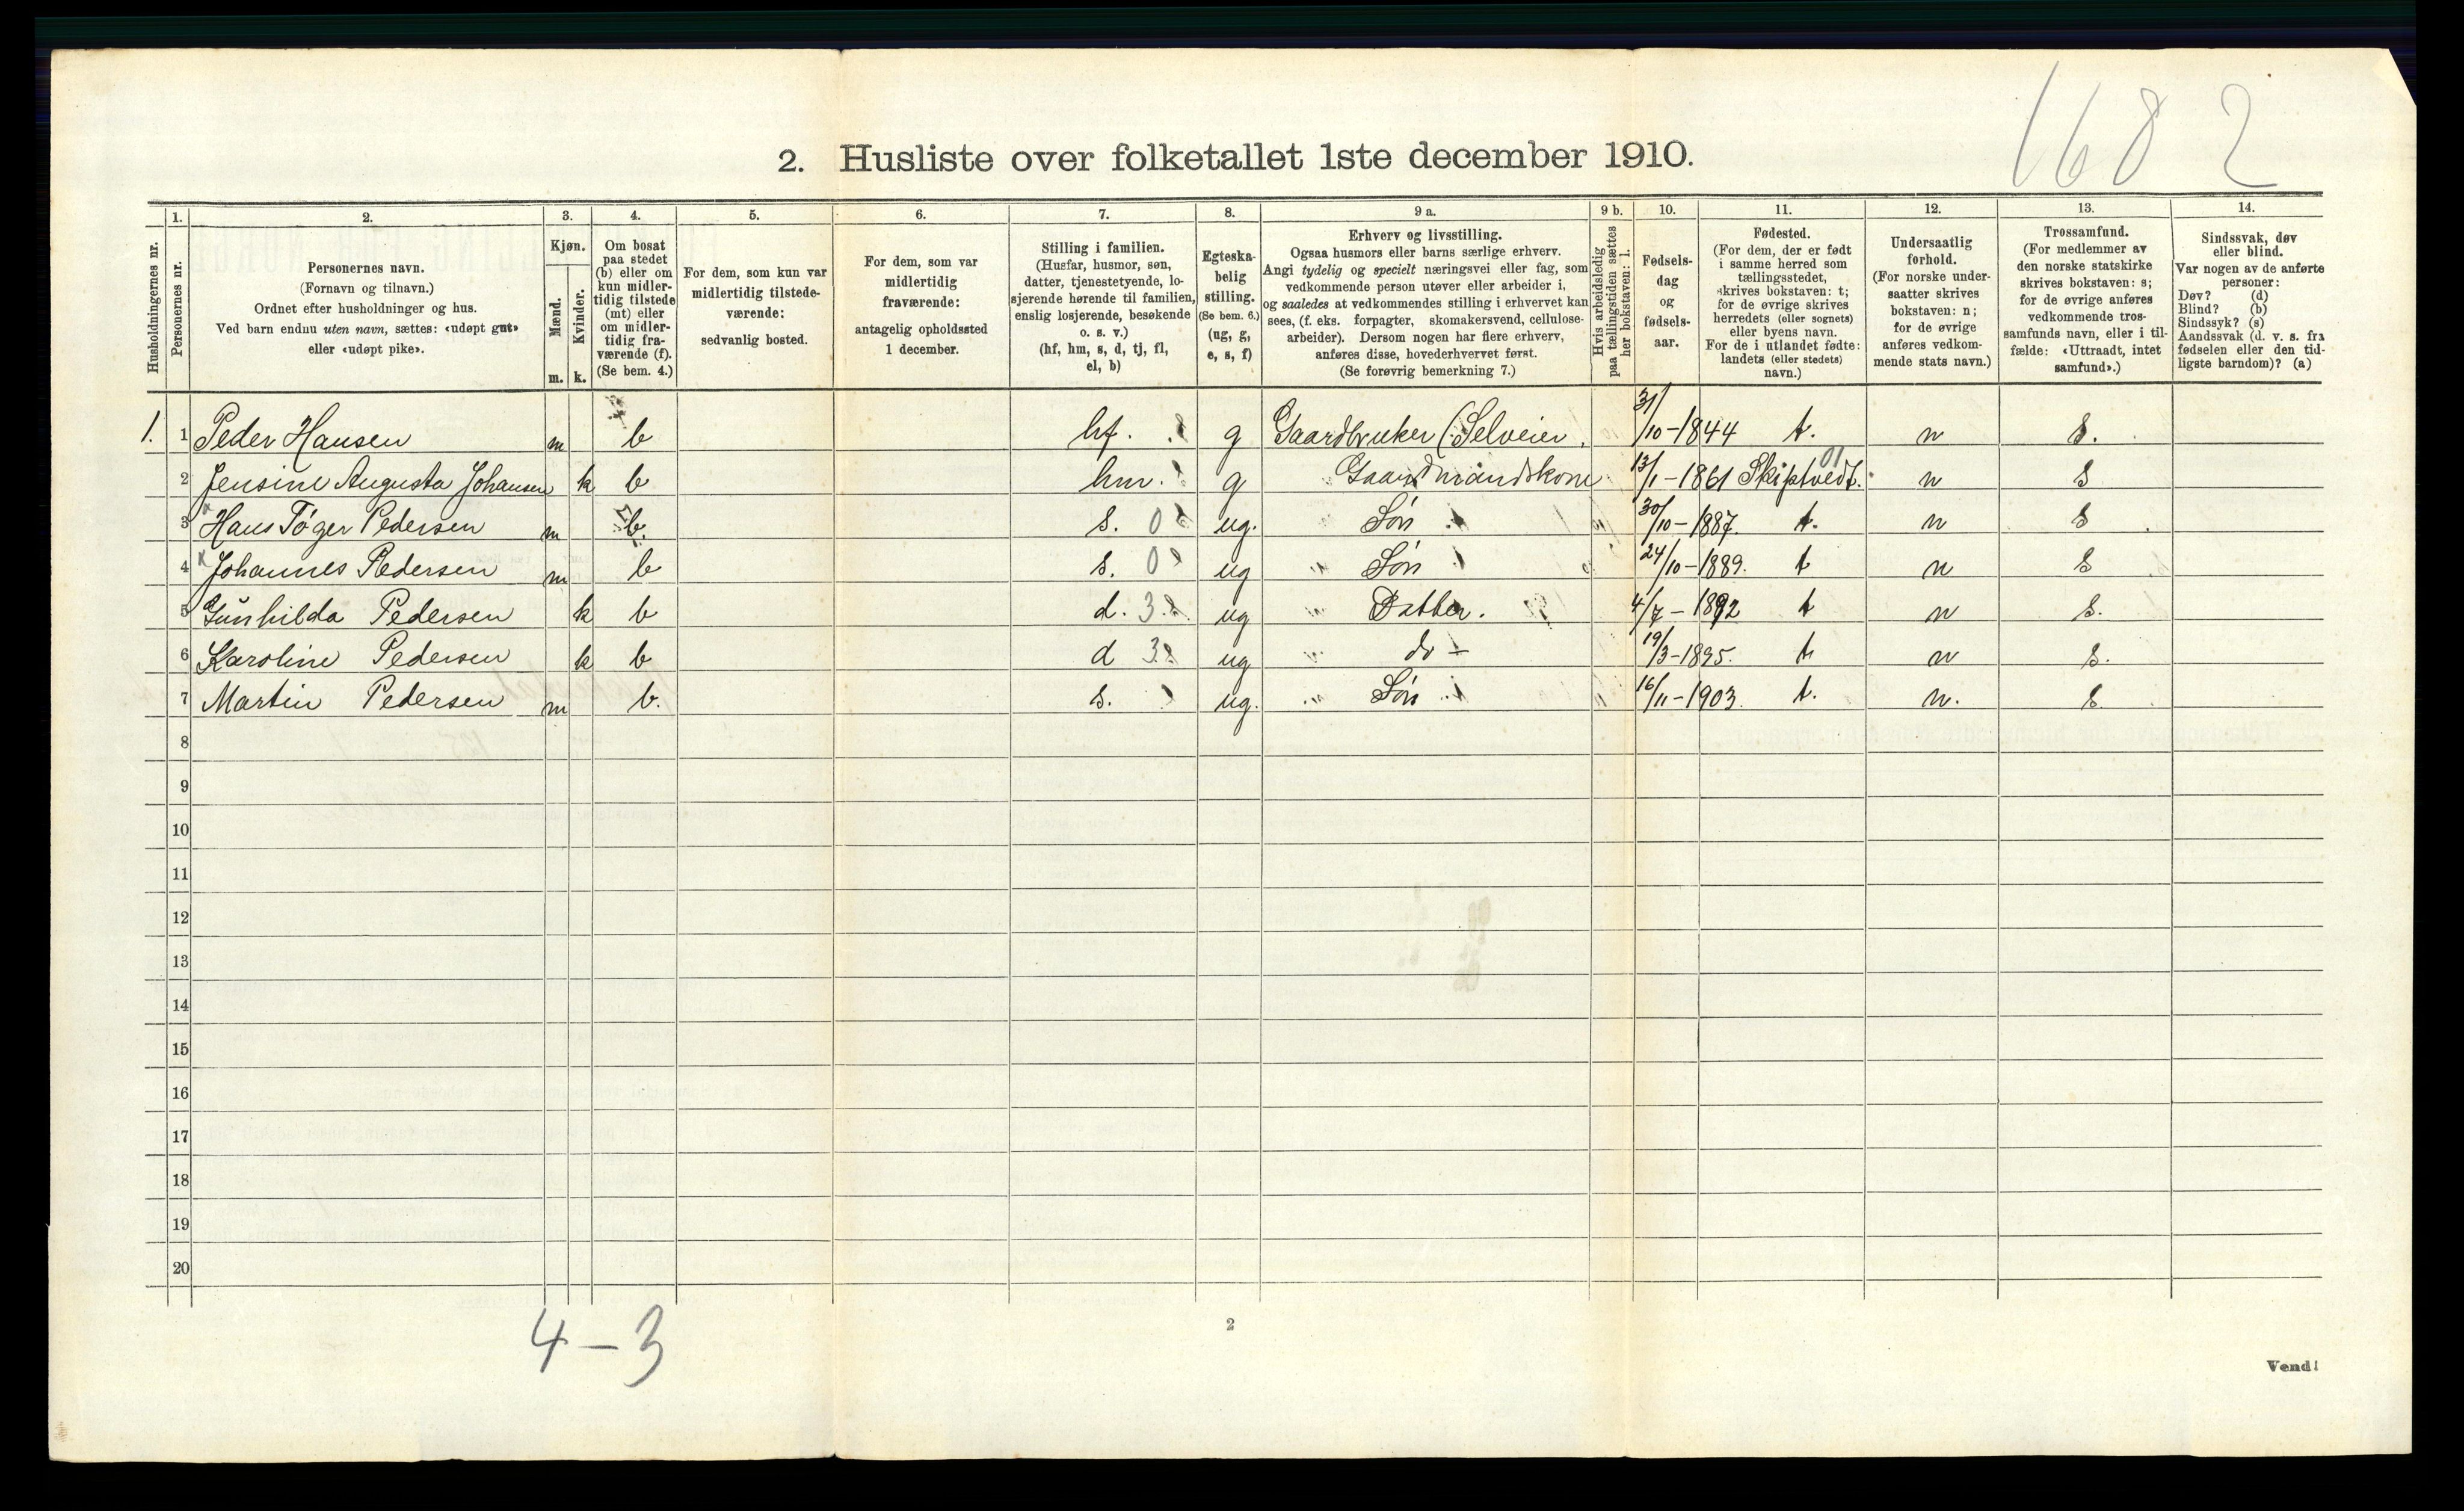 168 2
2. Husliste over folketallet 1ste december 1910.
Husholdningernes nr.
1.
Personernes nr.
2.
Personernes navn.
(Fornavn og tilnavn.)
Ordnet efter husholdninger og hus.
Ved barn endnu uten navn, sættes: «udøpt gut»
eller «udøpt pike».
3.
Kjøn.
Mænd.
Kvinder.
m. k.
4.
Om bosat
paa stedet
(b) eller om
kun midler-
tidig tilstede
(mt) eller
om midler-
tidig fra-
værende (f).
(Se bem. 4.)
5.
For dem, som kun var
midlertidig tilstede-
værende:
sedvanlig bosted.
6.
For dem, som var
midlertidig
fraværende:
antagelig opholdssted
1 december.
7.
Stilling i familien.
(Husfar, husmor, søn,
datter, tjenestetyende, lo-
sjerende hørende til familien,
enslig losjerende, besøkende
o. s. v.)
(hf, hm, s, d, tj, fl,
el, b)
8.
Egteska-
belig
stilling.
(Se bem. 6.)
(ug, g,
e, s, f)
9 a.
Erhverv og livsstilling.
Ogsaa husmors eller barns særlige erhverv.
Angi tydelig og specielt næringsvei eller fag, som
vedkommende person utøver eller arbeider i,
og saaledes at vedkommendes stilling i erhvervet kan
sees, (f. eks. forpagter, skomakersvend, cellulose-
arbeider). Dersom nogen har flere erhverv,
anføres disse, hovederhvervet først.
(Se forøvrig bemerkning 7.)
9 b.
Hvis arbeidsledig
paa tællingstiden sættes
her bokstaven: l.
10.
Fødsels-
dag
og
fødsels-
aar.
11.
Fødested.
(For dem, der er født
i samme herred som
tællingsstedet,
skrives bokstaven: t;
for de øvrige skrives
herredets (eller sognets)
eller byens navn.
For de i utlandet fødte:
landets (eller stedets)
navn.)
12.
Undersaatlig
forhold.
(For norske under-
saatter skrives
bokstaven: n;
for de øvrige
anføres vedkom-
mende stats navn.)
13.
Trossamfund.
(For medlemmer av
den norske statskirke
skrives bokstaven: s;
for de øvrige anføres
vedkommende tros-
samfunds navn, eller i til-
fælde: «Uttraadt, intet
samfund».)
14.
Sindssvak, døv
eller blind.
Var nogen av de anførte
personer:
Døv? (d)
Blind? (b)
Sindssyk? (s)
Aandssvak (d. v. s. fra
fødselen eller den tid-
ligste barndom)? (a)
1. 1 Peder Hansen m b hf. g Gaardbruker (Selveier. 31/10-1844 t. n s.
2 Jensine Augusta Johansen k b hm. g Gaardmandskone 13/1-1861 Skiptvedt. 01 n s
3 Hans Tøger Pedersen m b. s. 0 ug. Søn 30/10-1887. t. n s
4 Johannes Pedersen m b s. 0 ug " Søn 24/10-1889. t n s
5 Gunhilda Pedersen k b d. 3 ug " Datter. 4/7-1892 t n s.
6 Karoline Pedersen k b d 3 ug " do - 19/3-1895. t n s.
7 Martin Pedersen m b. s. ug. " Søn 16/11-1903. t. n. s.
8
9
10
11
12
13
14
15
16
17
18
19
20
4-3
2
Vend!